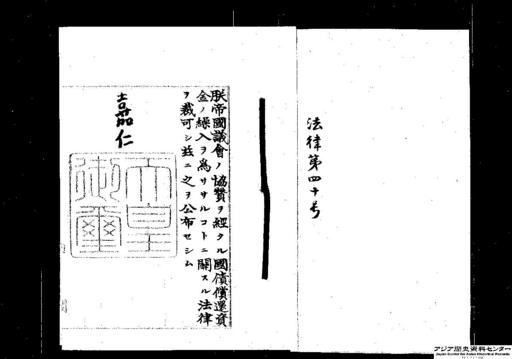 法律第四十号
朕帝國議會ノ協贊ヲ經タル國債償還資
金ノ繰入ヲ爲ササルコトニ關スル法律
ヲ裁可シ玆ニ之ヲ公布セシム
嘉仁
天皇
御璽
アジア歴史資料センター
Japan Center for Asian Historical Records